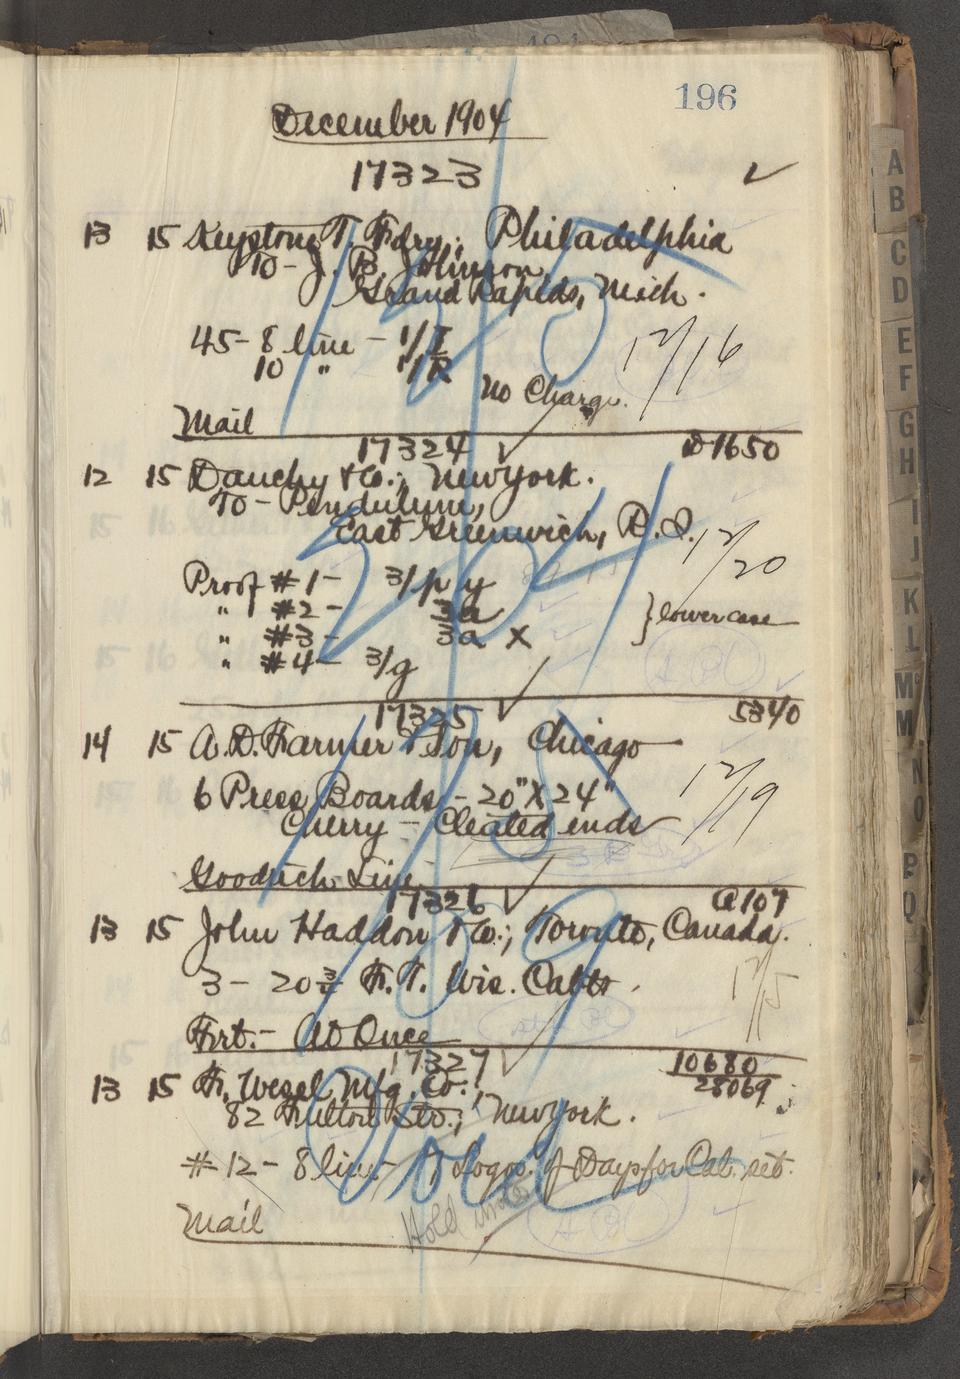 196
December 1904
17323 ✓
13 15 Keystone T. Fdry., Philadelphia
To- J. B. Johnson,
Grand Rapids, Mich.
45- 8 line - 1/I
10 " 1/R
12/16
No Charge.
Mail
17324 D1650
12 15 Dauchy & Co., New York.
To- Pendulum,
East Greenwich, R.I.
12/20
Proof #1- 3/p y
" #2- 3a
" #3- 3a X
} lower case
" #4- 3/g
17325 5340
14 15 A.D. Farmer & Son, Chicago
6 Press Boards - 20" X 24"
Cherry - Cleated ends
12/19
Goodrich Line
17326 @107
13 15 John Haddon & Co.; Toronto, Canada.
3- 20 3/4 F.T. Wis. Cabts.
12/15
Frt.- At Once
17327 10680
28069
13 15 F. Wesel Mfg. Co.
82 Fulton St.; New York.
#12- 8 line- 7 Logos. of Days for Cal. set.
Hold
Mail
A
B
C
D
E
F
G
H
I
J
K
L
Mc
M
N
O
P
Q